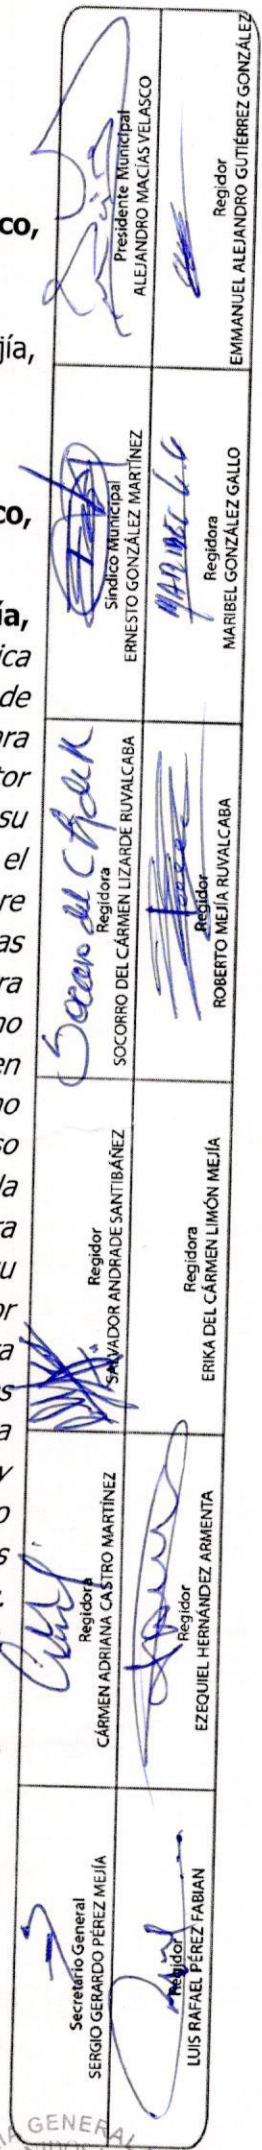 co,
jía,
co,
ía,
ica
de
ara
tor
su
el
re
as
ra
no
en
no
so
la
ra
su
or
ra
es
a
y
o
s
Presidente Municipal
ALEJANDRO MACÍAS VELASCO
Regidor
EMMANUEL ALEJANDRO GUTIÉRREZ GONZÁLEZ
Síndico Municipal
ERNESTO GONZÁLEZ MARTÍNEZ
MARIBEL G. G
Regidora
MARIBEL GONZÁLEZ GALLO
Socorro del C
Regidora
SOCORRO DEL CÁRMEN LIZARDE RUVALCABA
Regidor
ROBERTO MEJÍA RUVALCABA
Regidor
SALVADOR ANDRADE SANTIBÁÑEZ
Regidora
ERIKA DEL CÁRMEN LIMÓN MEJÍA
Regidora
CÁRMEN ADRIANA CASTRO MARTÍNEZ
Regidor
EZEQUIEL HERNÁNDEZ ARMENTA
Secretario General
SERGIO GERARDO PÉREZ MEJÍA
Regidor
LUIS RAFAEL PÉREZ FABIAN
GENERAL